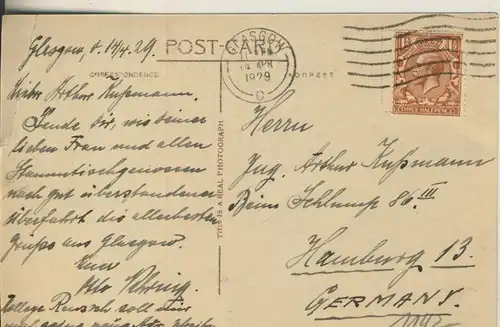 Glasgow, d. 14/4.29.
POST-CARD
CORRESPONDENCE
ADDRESS
GLASGOW
14 APR
1929
C
THREE HALFPENCE
Lieber Arthur Kußmann.
Sende dir, wie deiner
lieben Frau und allen
Stammtischgenossen
nach gut überstandener
Überfahrt die allerbesten
Grüße aus Glasgow.
Euer
Otto
soll mir
THIS IS A REAL PHOTOGRAPH
Herrn
Ing. Arthur Kußmann
Beim Schlump 86 III
Hamburg 13.
GERMANY